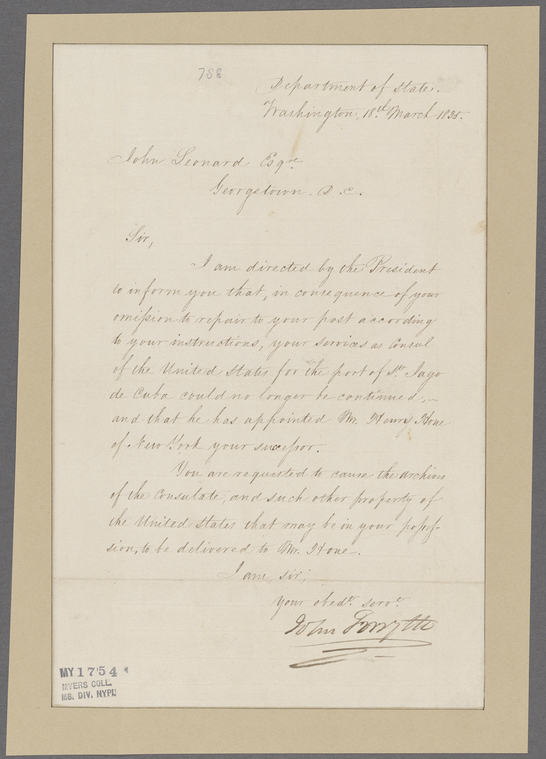 788
Department of State.
Washington, 18th March 1835.
John Leonard Esqre.
Georgetown. D. C.
Sir,
I am directed by the President
to inform you that, in consequence of your
omission to repair to your post according
to your instructions, your services as Consul
of the United States for the port of St. Jago
de Cuba could no longer be continued,—
and that he has appointed Mr. Henry Hone
of New York your successor.
You are requested to cause the archives
of the Consulate, and such other property of
the United States that may be in your posses-
sion, to be delivered to Mr. Hone.
I am, sir,
your obedt. servt.
John Forsyth
MY 1754
MYERS COLL.
MS. DIV. NYPL